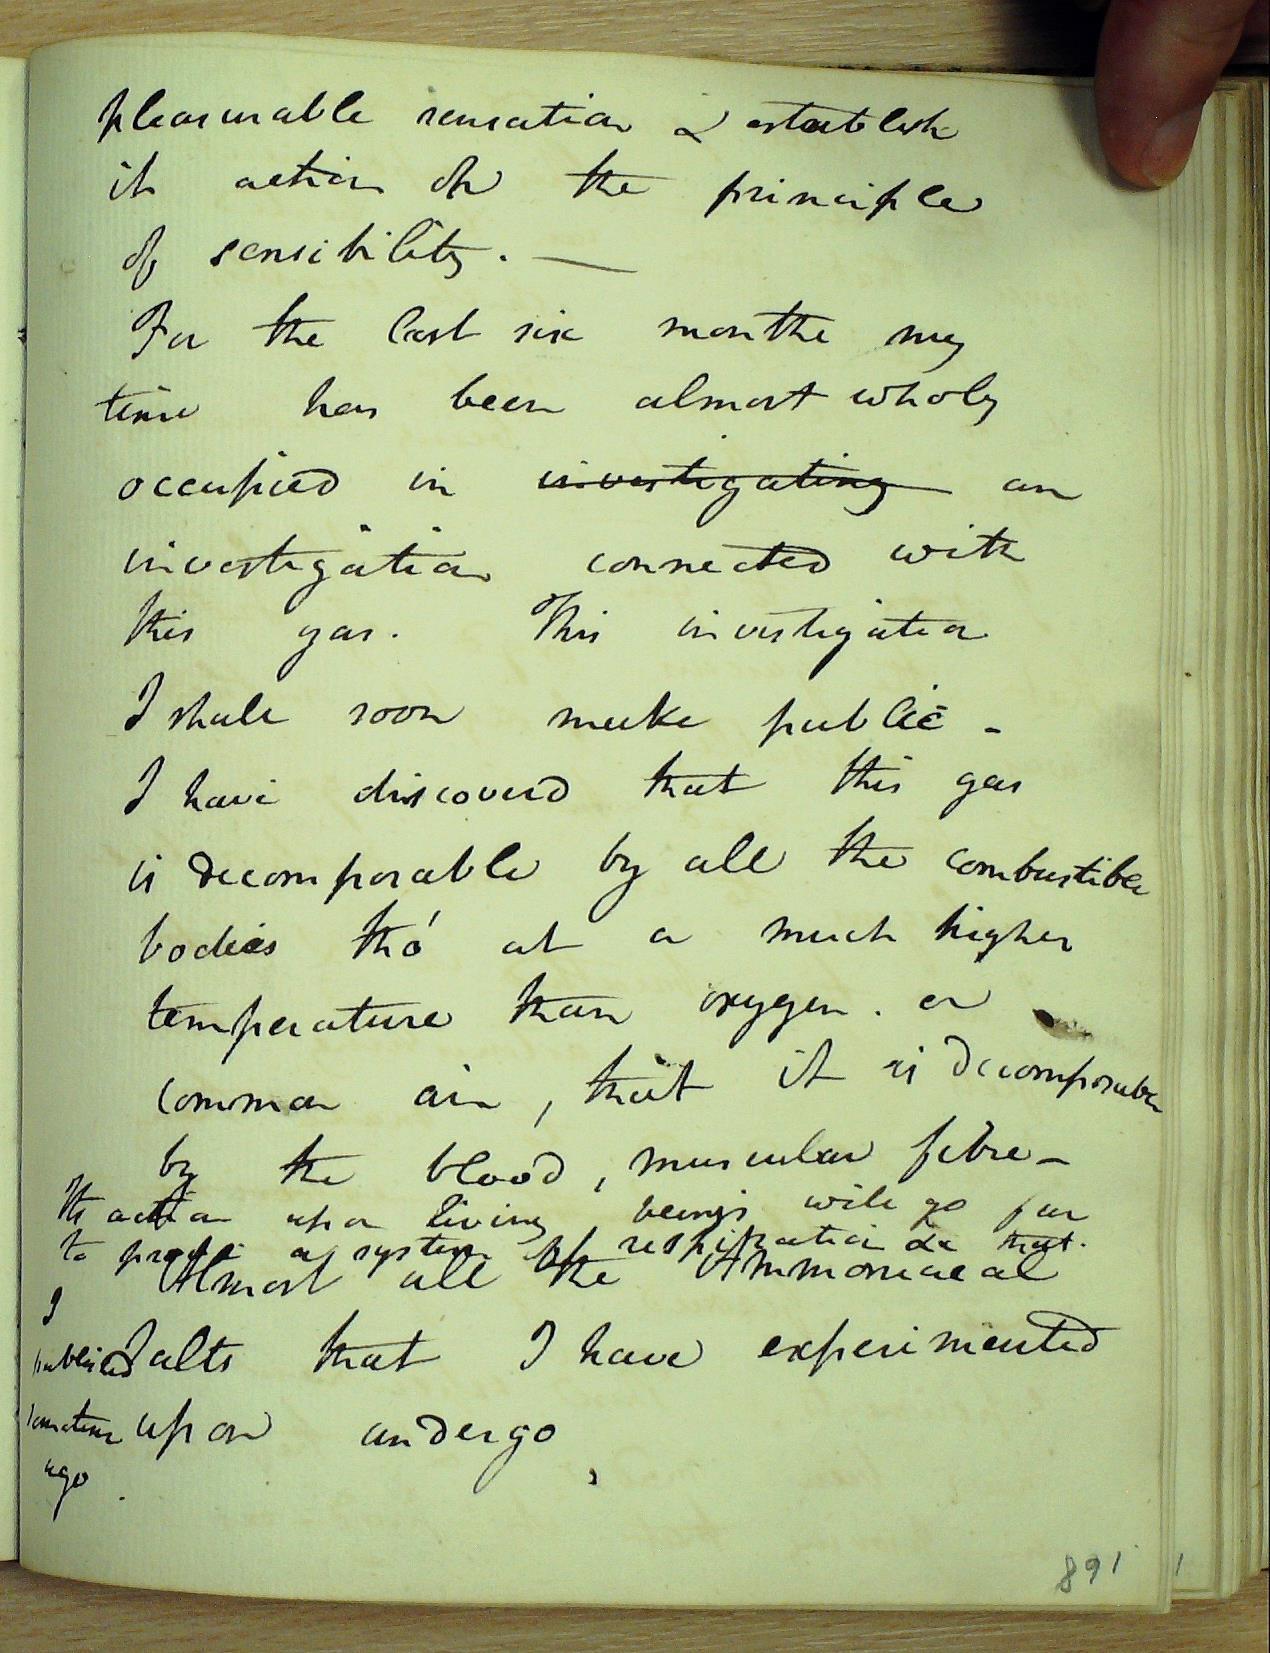 pleasurable sensation & establish
it action on the principle
of sensibility. —
For the last six months my
time has been almost wholy
occupied in investigating an
investigation connected with
this gas. This investigation
I shall soon make public -
I have discoverd that this gas
is decomposable by all the combustible
bodies tho' at a much higher
temperature than oxygen. or
common air, that it is decomposable
by the blood, muscular fibre -
Its action upon living beings will go far
to prove a system of respiration &c that.
Almost all the Ammoniacal
Salts that I have experimented
upon undergo,
I
published
sometime
ago.
891